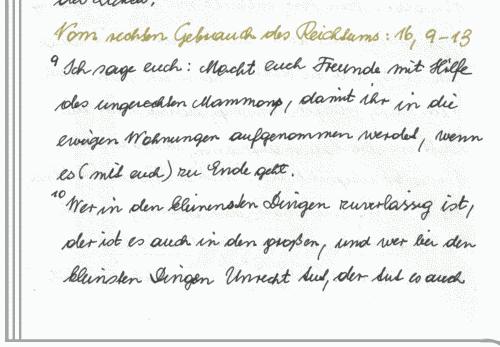 Vom rechten Gebrauch des Reichtums: 16, 9-13
9 Ich sage euch: Macht euch Freunde mit Hilfe
des ungerechten Mammons, damit ihr in die
ewigen Wohnungen aufgenommen werdet, wenn
es (mit euch) zu Ende geht.
10 Wer in den kleinensten Dingen zuverlässig ist,
der ist es auch in den großen, und wer bei den
kleinsten Dingen Unrecht tut, der tut es auch